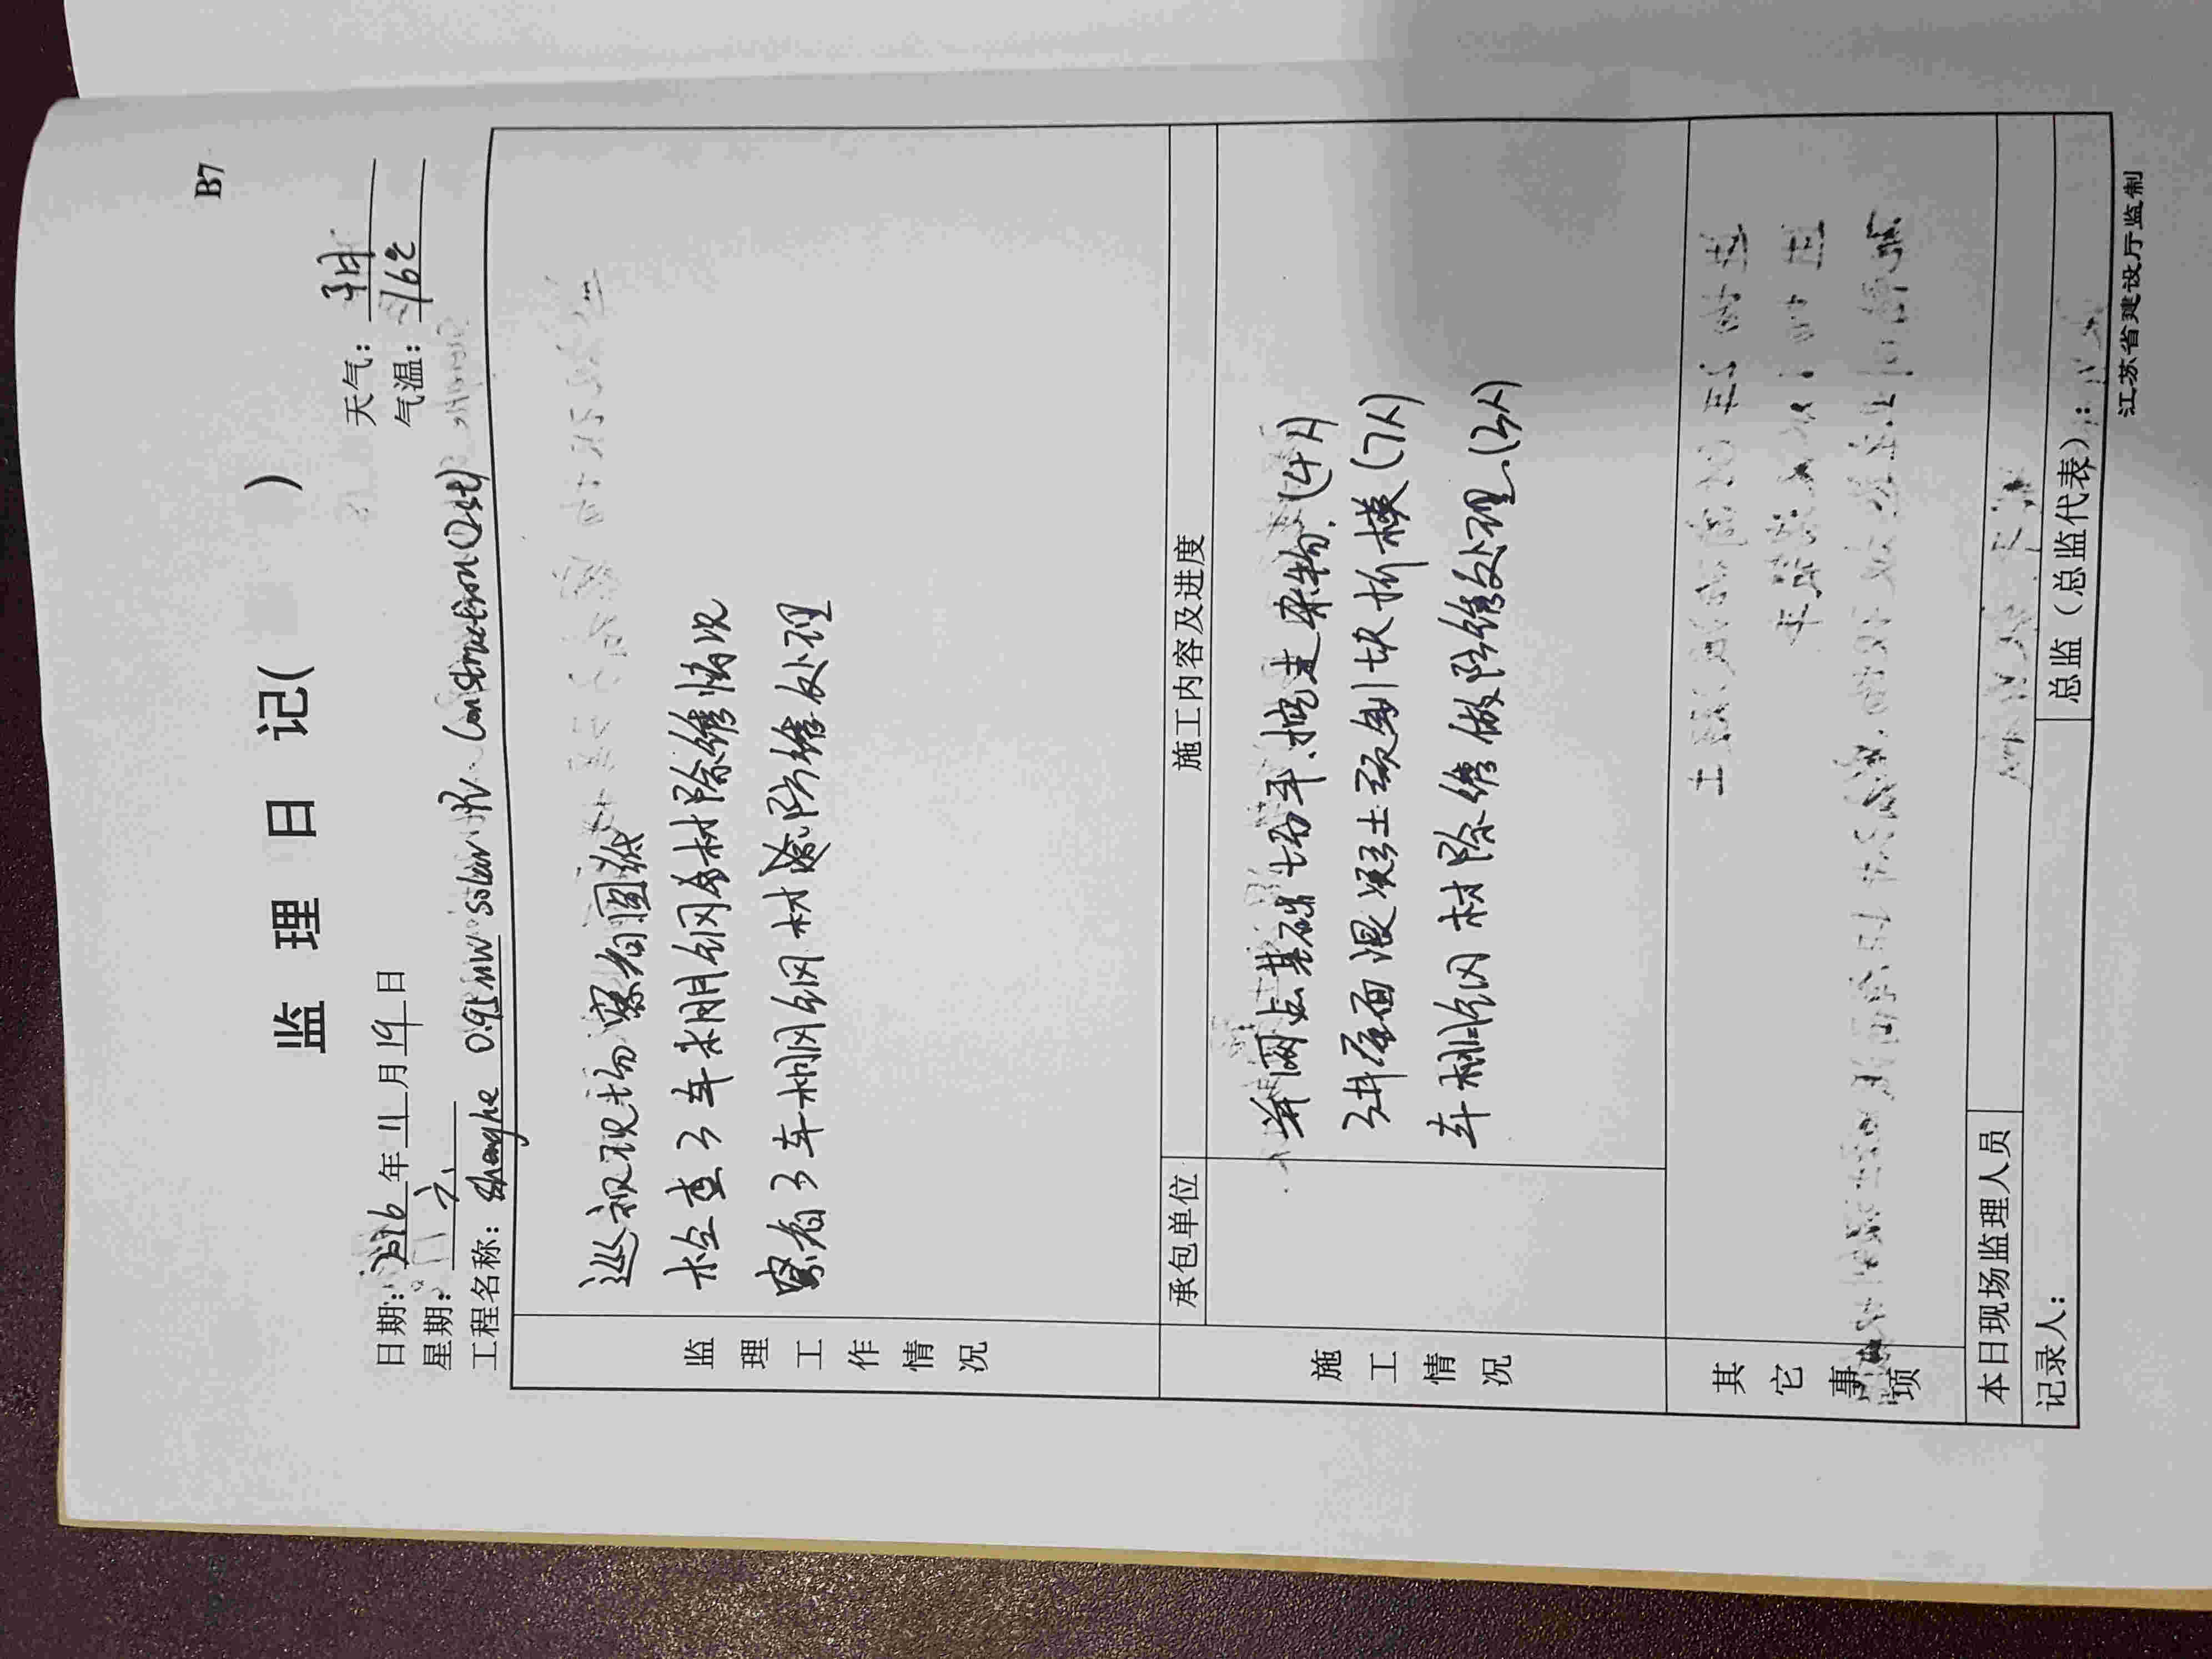 B7
监理日记( )
日期: 2016年11月19日 天气: 阴
星期: 六 气温: 16℃
工程名称: Shenghe 0.95MW solar PV Construction(2st)
监理工作情况
巡视现场察看图纸
检查3车棚钢材除锈情况
察看3车棚钢材涂防锈处理
施工情况
承包单位 施工内容及进度
并网点基础场平.挖走杂物.(4人)
3#屋面混凝土预制块拆模(7人)
车棚钢材除锈做防锈处理.(3人)
其它事项
本日现场监理人员
记录人: 总监(总监代表):
江苏省建设厅监制